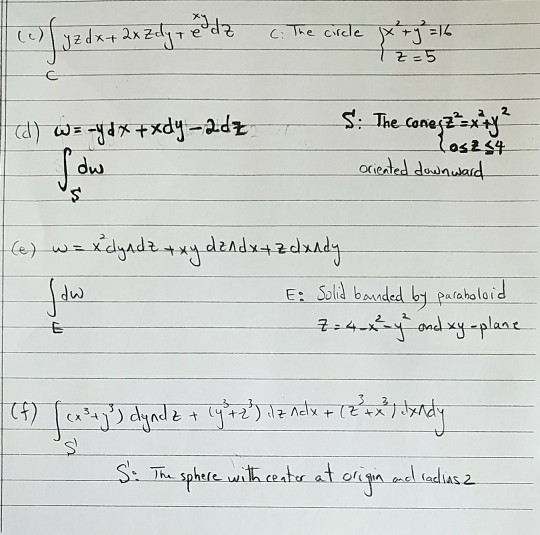 (c) ∫_C yzdx + 2xzdy + e^{xy}dz   C: The circle { x² + y² = 16
z = 5
(d) ω = -ydx + xdy - 2dz   S: The cone { z² = x² + y²
0 ≤ z ≤ 4
∫_S dω   oriented downward
(e) ω = x²dy∧dz + xy dz∧dx + zdx∧dy
∫_E dω   E: Solid bounded by paraboloid
z = 4 - x² - y² and xy-plane
(f) ∫_S (x³+y³) dy∧dz + (y³+z³) dz∧dx + (z³+x³) dx∧dy
S: The sphere with center at origin and radius 2